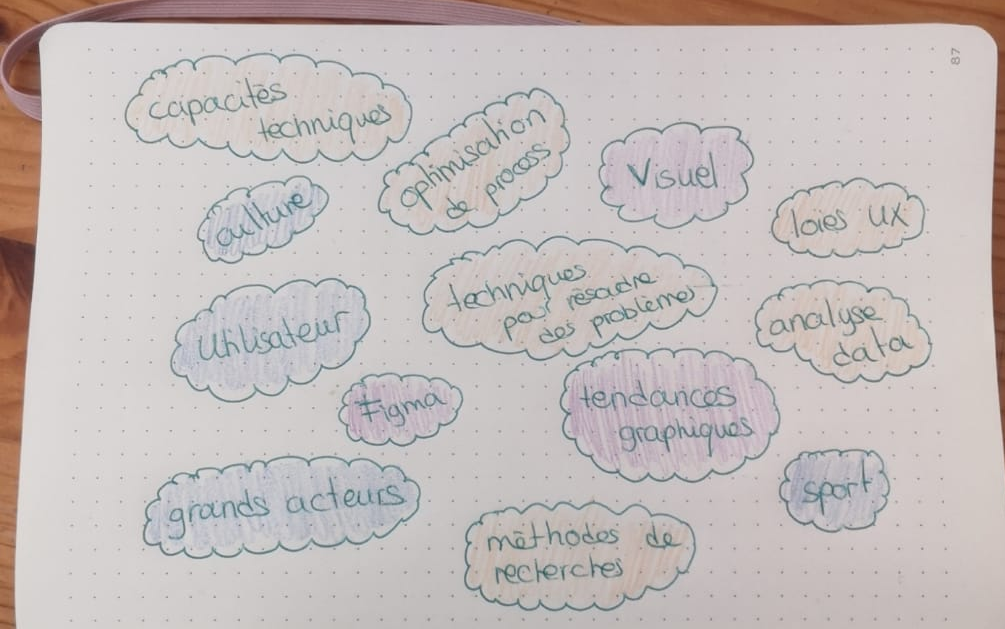 87
capacités
techniques
optimisation
de process
Visuel
culture
loies UX
techniques
pour résoudre
des problèmes
utilisateur
analyse
data
Figma
tendances
graphiques
grands acteurs
sport
méthodes de
recherches